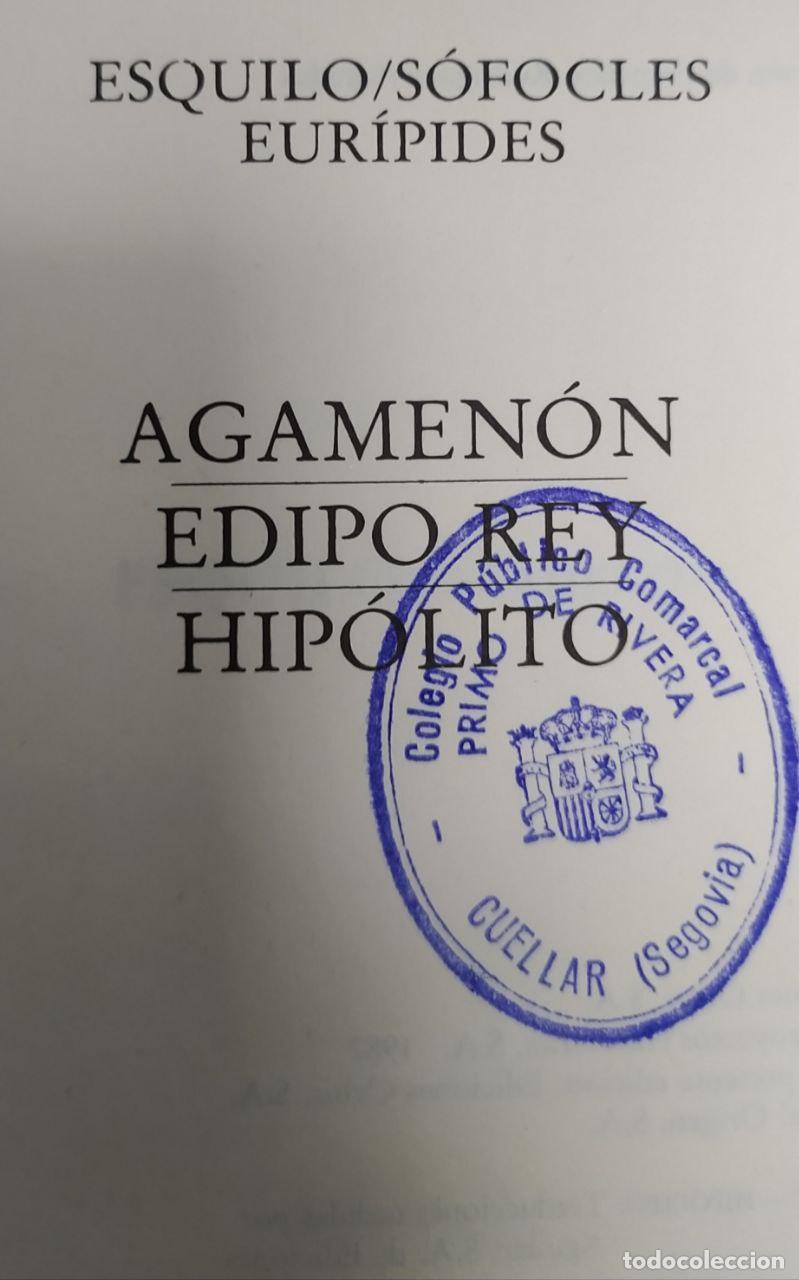 ESQUILO/SÓFOCLES
EURÍPIDES
AGAMENÓN
EDIPO REY
HIPÓLITO
Colegio Público Comarcal
PRIMO DE RIVERA
CUELLAR (Segovia)
todocoleccion